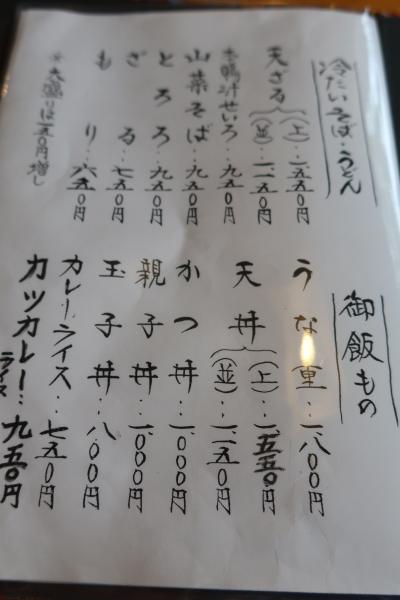 冷たいそば・うどん
天ざる(上)‥一、五五〇円
(並)‥一、一五〇円
本鴨汁せいろ‥九五〇円
山菜そば‥九五〇円
とろろ‥九五〇円
ざる‥七五〇円
もり‥六五〇円
☆大盛りは一五〇円増し
御飯もの
うな重‥一、八〇〇円
天丼(上)‥一、五五〇円
(並)‥一、一五〇円
かつ丼‥一、〇〇〇円
親子丼‥一、〇〇〇円
玉子丼‥八〇〇円
カレーライス‥七五〇円
カツカレーライス‥九五〇円